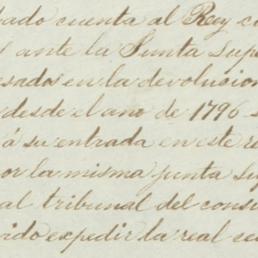 bado cuenta al Rey c
ante la Junta Supe
esado en la devolucion
desde el ano de 1796
á su entrada en este re
por la misma junta Su
al tribunal del consu
vido expedir la real ce